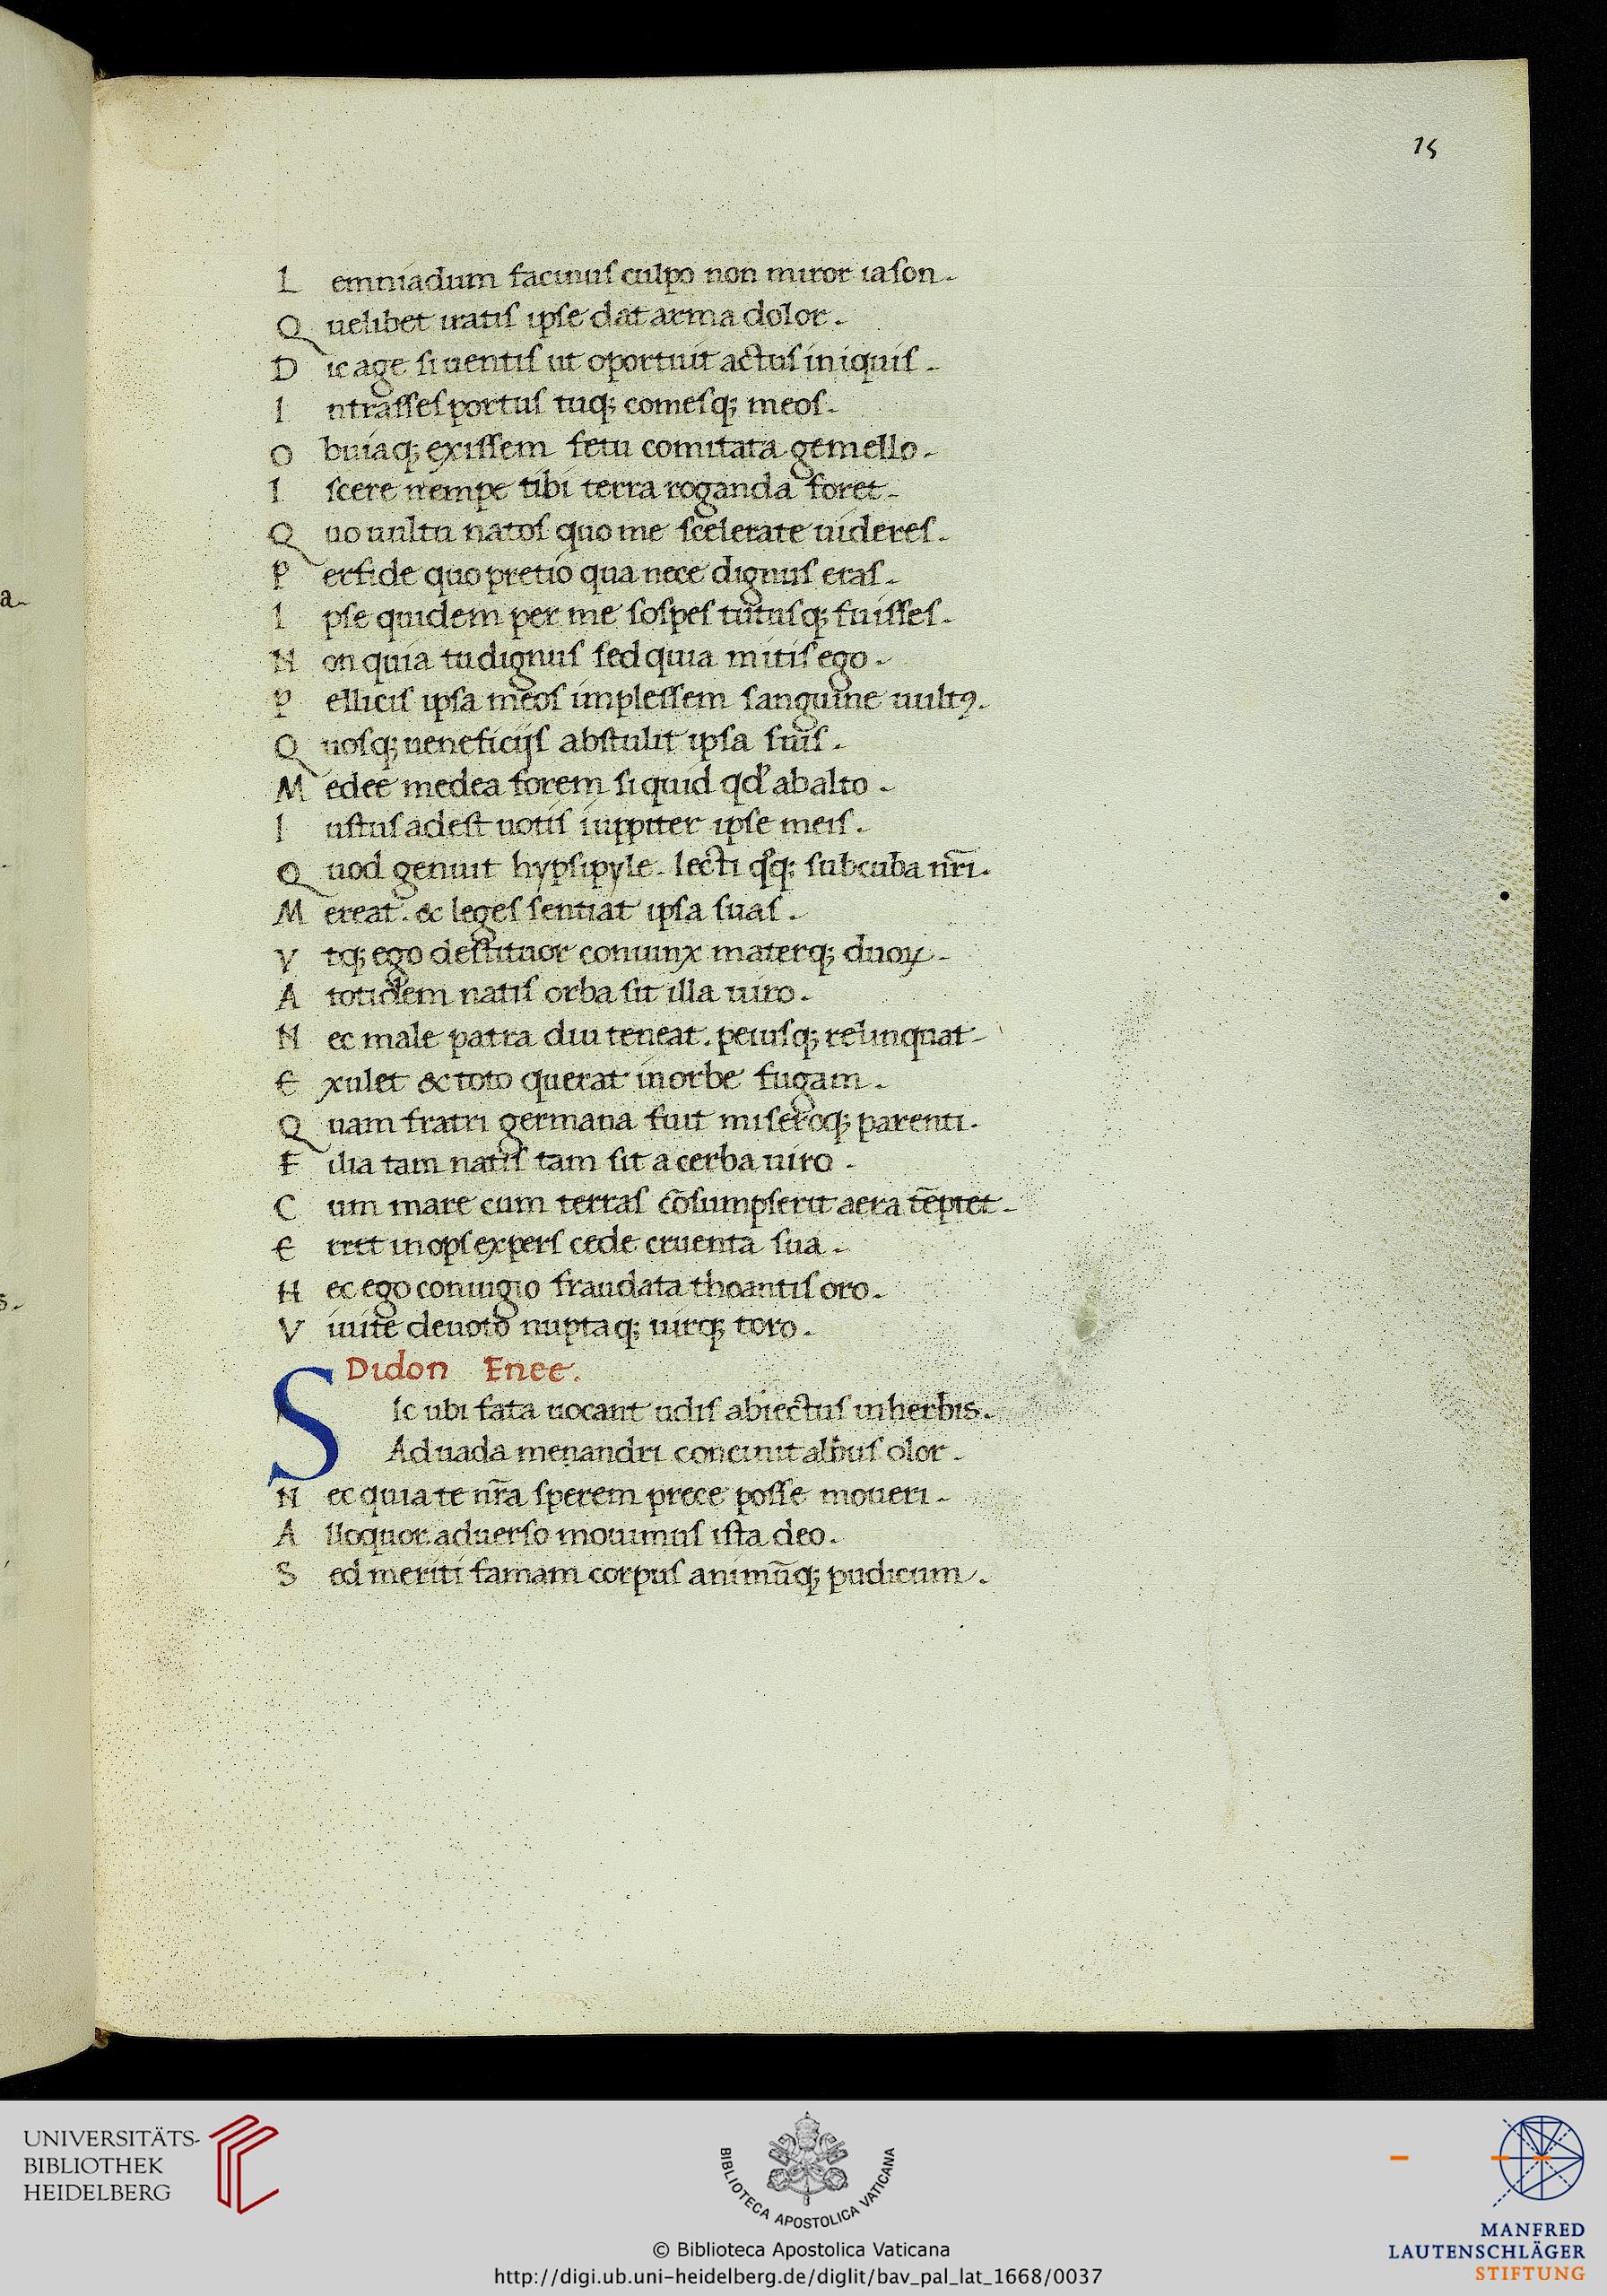 15
L emniadum facinuſ culpo non miror iaſon.
Q uelibet iratiſ ipſe dat arma dolor.
D ic age ſi uentiſ ut oportuit actuſ iniquiſ.
I ntraſſeſ portuſ tuq; comeſq; meoſ.
O buiaq; exiſſem fetu comitata gemello.
I ſcere nempe tibi terra roganda foret.
Q uo uultu natoſ quo me ſcelerate uidereſ.
P erfide quo pretio qua nece dignuſ eraſ.
I pſe quidem per me ſoſpeſ tutuſq; fuiſſeſ.
N on quia tu dignuſ ſed quia mitiſ ego.
P elliciſ ipſa meoſ impleſſem ſanguine uultꝰ.
Q uoſq; ueneficijſ abſtulit ipſa ſuiſ.
M edee medea forem ſi quid qd' ab alto.
I uſtuſ adeſt uotiſ iuppiter ipſe meiſ.
Q uod genuit hypſipyle. lecti q̊q; ſubcuba nr̄i.
M ereat. & legeſ ſentiat ipſa ſuaſ.
V tq; ego deſtituor coniunx materq; duoꝝ.
A totidem natiſ orba ſit illa uiro.
N ec male patra diu teneat. peiuſq; relinquat.
E xulet & toto querat in orbe fugam.
Q uam fratri germana fuit miſeroq; parenti.
F ilia tam natiſ tam ſit acerba uiro.
C um mare cum terraſ cōſumpſerit aera tēptet.
E rret inopſ experſ cede cruenta ſua.
H ec ego coniugio fraudata thoantiſ oro.
V iuite deuoto nuptaq; uirq; toro.
Didon Enee.
S Ic ubi fata uocant udiſ abiectuſ in herbis.
Ad uada menandri concinit albuſ olor.
N ec quia te nr̄a ſperem prece poſſe moueri.
A lloquor. aduerſo mouimuſ iſta deo.
S ed meriti famam corpuſ animūq; pudicum.
a.
s.
UNIVERSITÄTS-
BIBLIOTHEK
HEIDELBERG
BIBLIOTECA APOSTOLICA VATICANA
© Biblioteca Apostolica Vaticana
http://digi.ub.uni-heidelberg.de/diglit/bav_pal_lat_1668/0037
MANFRED
LAUTENSCHLÄGER
STIFTUNG